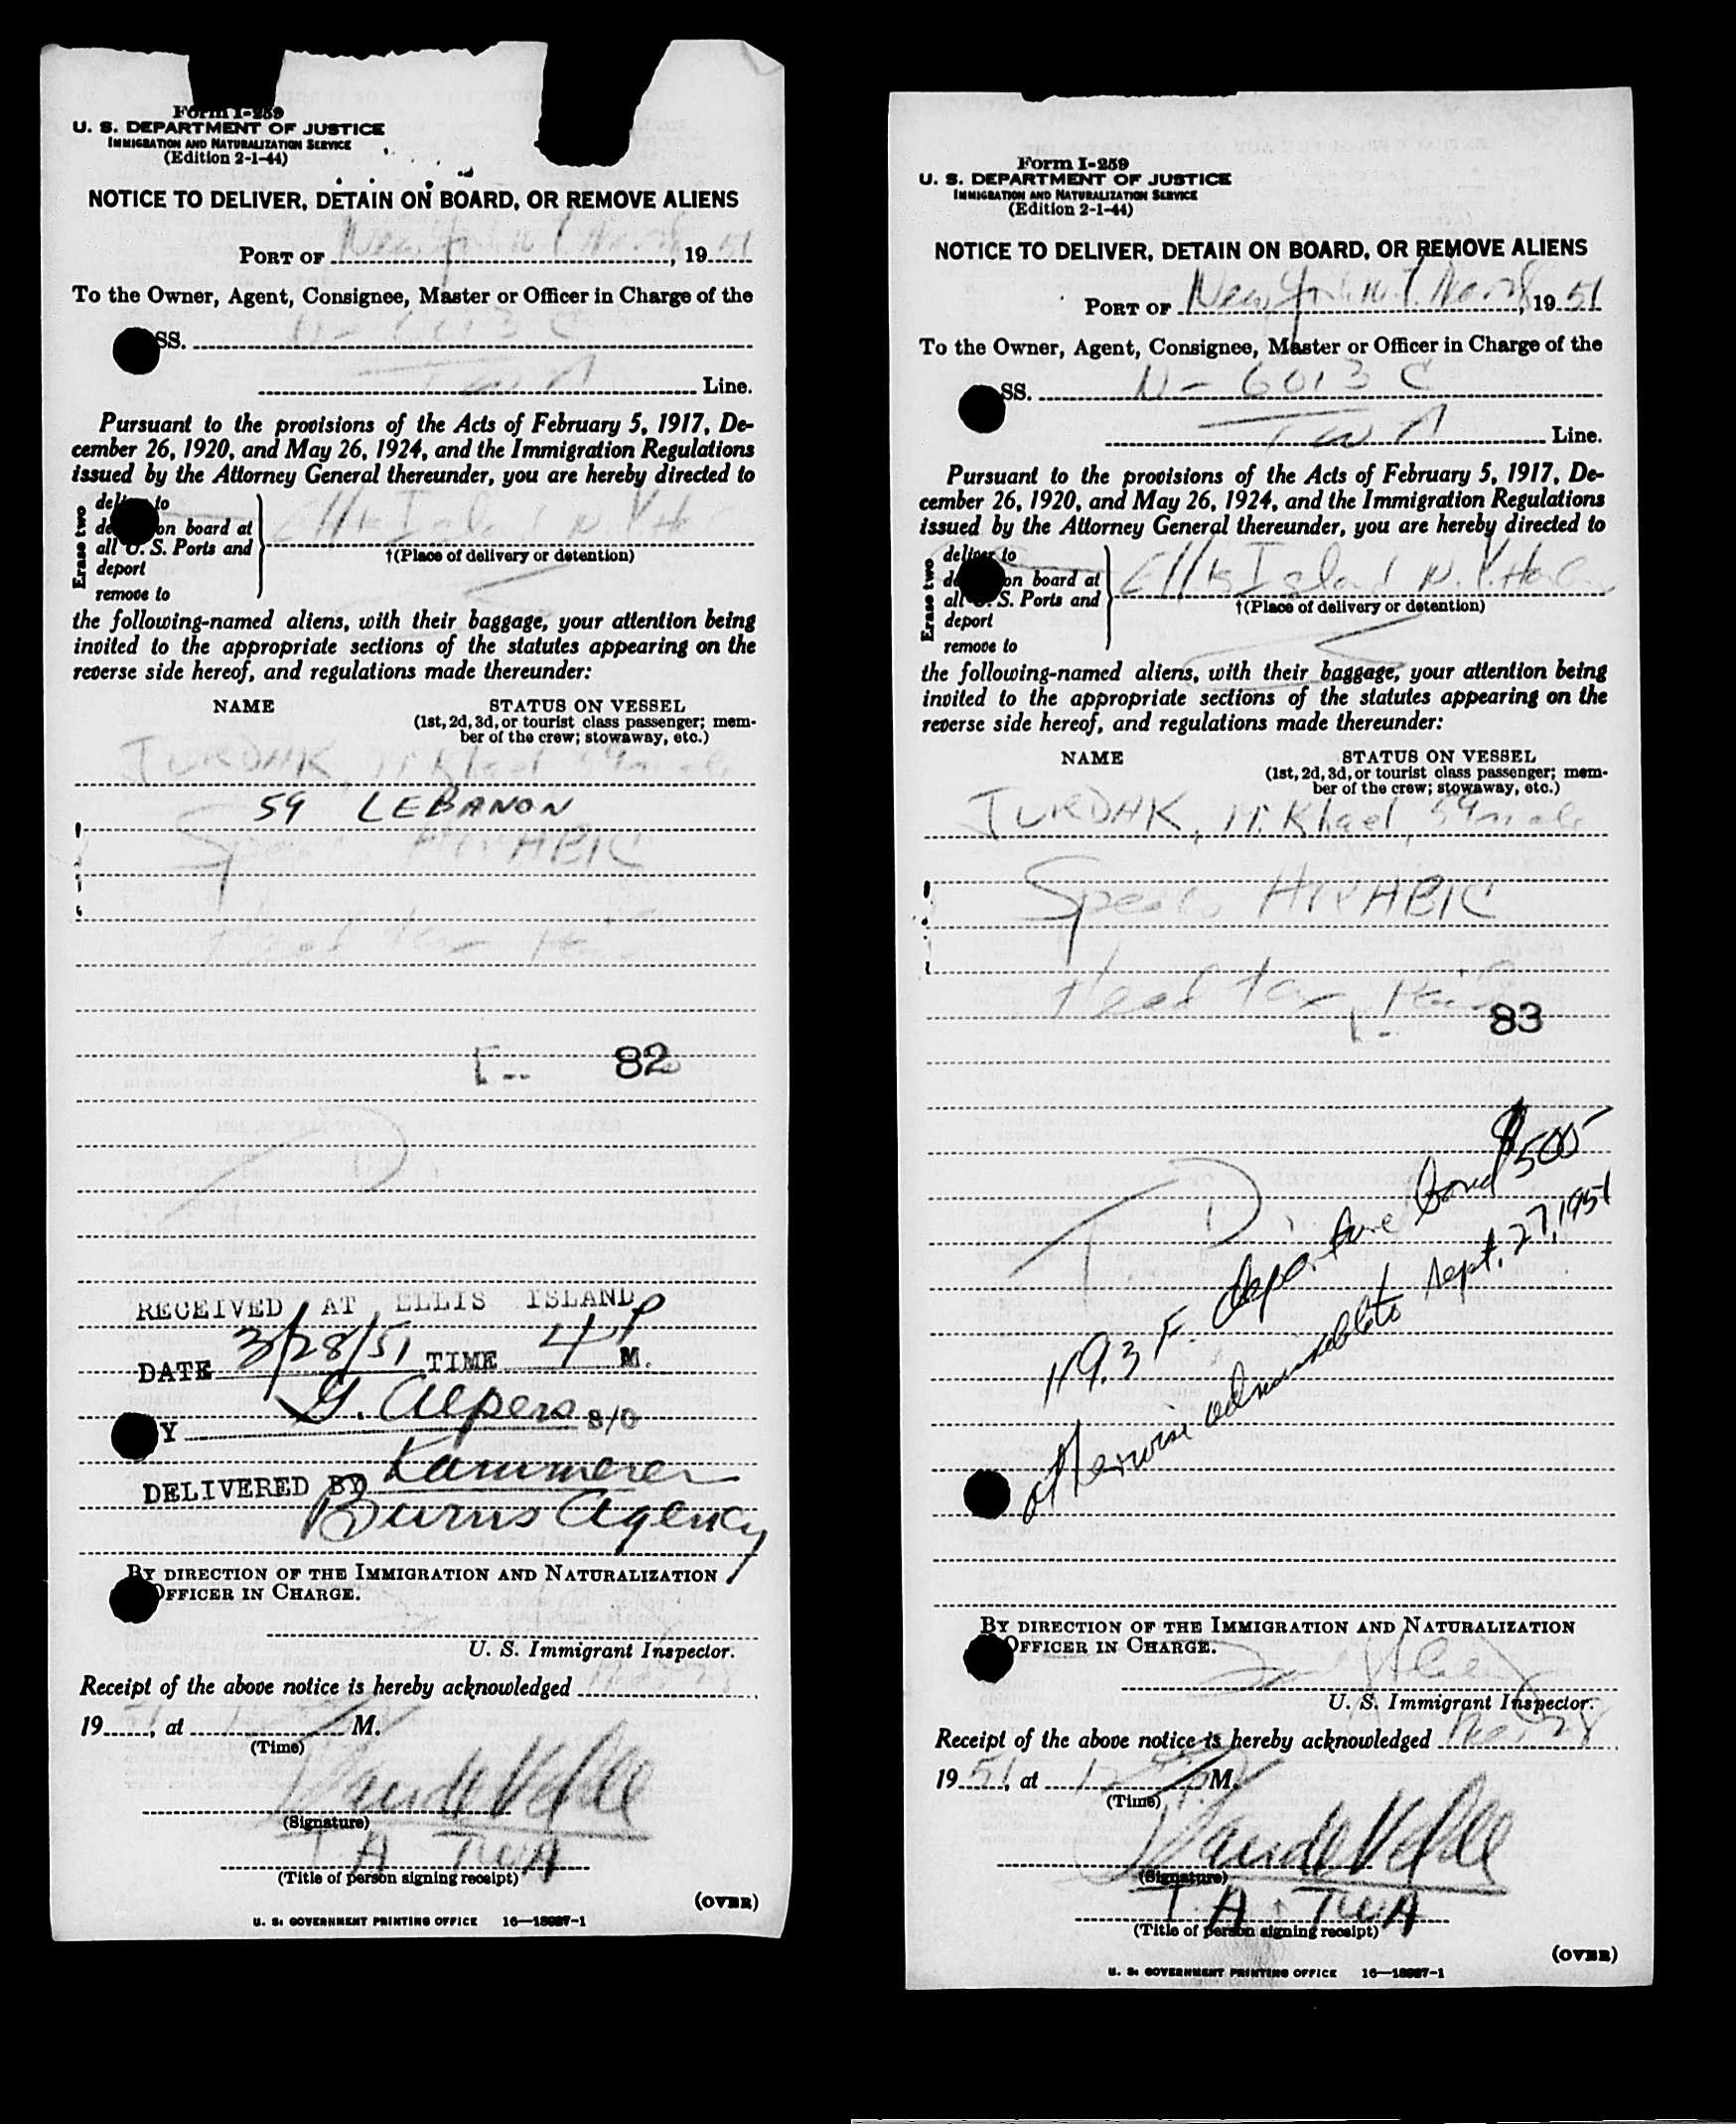 Form I-259
U. S. DEPARTMENT OF JUSTICE
IMMIGRATION AND NATURALIZATION SERVICE
(Edition 2-1-44)
NOTICE TO DELIVER, DETAIN ON BOARD, OR REMOVE ALIENS
PORT OF New York N.Y. Mar 28, 19 51
To the Owner, Agent, Consignee, Master or Officer in Charge of the
SS. N-6013 C
TWA Line.
Pursuant to the provisions of the Acts of February 5, 1917, De-
cember 26, 1920, and May 26, 1924, and the Immigration Regulations
issued by the Attorney General thereunder, you are hereby directed to
Erase two
to
on board at
all U. S. Ports and
deport
remove to
Ellis Island N.Y.
†(Place of delivery or detention)
the following-named aliens, with their baggage, your attention being
invited to the appropriate sections of the statutes appearing on the
reverse side hereof, and regulations made thereunder:
NAME STATUS ON VESSEL
(1st, 2d, 3d, or tourist class passenger; mem-
ber of the crew; stowaway, etc.)
JURDAK, Mikhael 59 male
59 LEBANON
Speaks ARABIC
Head tax
82
RECEIVED AT ELLIS ISLAND
DATE 3/28/51 TIME 4 P M.
Y G. Alpers S/O
DELIVERED BY Kammerer
Burns Agency
BY DIRECTION OF THE IMMIGRATION AND NATURALIZATION
OFFICER IN CHARGE.
U. S. Immigrant Inspector.
Receipt of the above notice is hereby acknowledged Mar 28
19 51, at M.
(Time)
(Signature)
T.A TWA
(Title of person signing receipt)
(OVER)
U. S. GOVERNMENT PRINTING OFFICE 16—18927-1
Form I-259
U. S. DEPARTMENT OF JUSTICE
IMMIGRATION AND NATURALIZATION SERVICE
(Edition 2-1-44)
NOTICE TO DELIVER, DETAIN ON BOARD, OR REMOVE ALIENS
PORT OF New York N.Y. Mar 28, 19 51
To the Owner, Agent, Consignee, Master or Officer in Charge of the
SS. N-6013 C
TWA Line.
Pursuant to the provisions of the Acts of February 5, 1917, De-
cember 26, 1920, and May 26, 1924, and the Immigration Regulations
issued by the Attorney General thereunder, you are hereby directed to
Erase two
deliver to
on board at
all U. S. Ports and
deport
remove to
Ellis Island N.Y. Harbor
†(Place of delivery or detention)
the following-named aliens, with their baggage, your attention being
invited to the appropriate sections of the statutes appearing on the
reverse side hereof, and regulations made thereunder:
NAME STATUS ON VESSEL
(1st, 2d, 3d, or tourist class passenger; mem-
ber of the crew; stowaway, etc.)
JURDAK, Mikhael, 59 male
Speaks ARABIC
Head tax
83
T.D.
119.3 F. departure bond $500
otherwise admissible to Sept. 27, 1951
BY DIRECTION OF THE IMMIGRATION AND NATURALIZATION
OFFICER IN CHARGE.
U. S. Immigrant Inspector.
Receipt of the above notice is hereby acknowledged Mar 28
19 51, at M.
(Time)
(Signature)
T.A. TWA
(Title of person signing receipt)
(OVER)
U. S. GOVERNMENT PRINTING OFFICE 16—18927-1